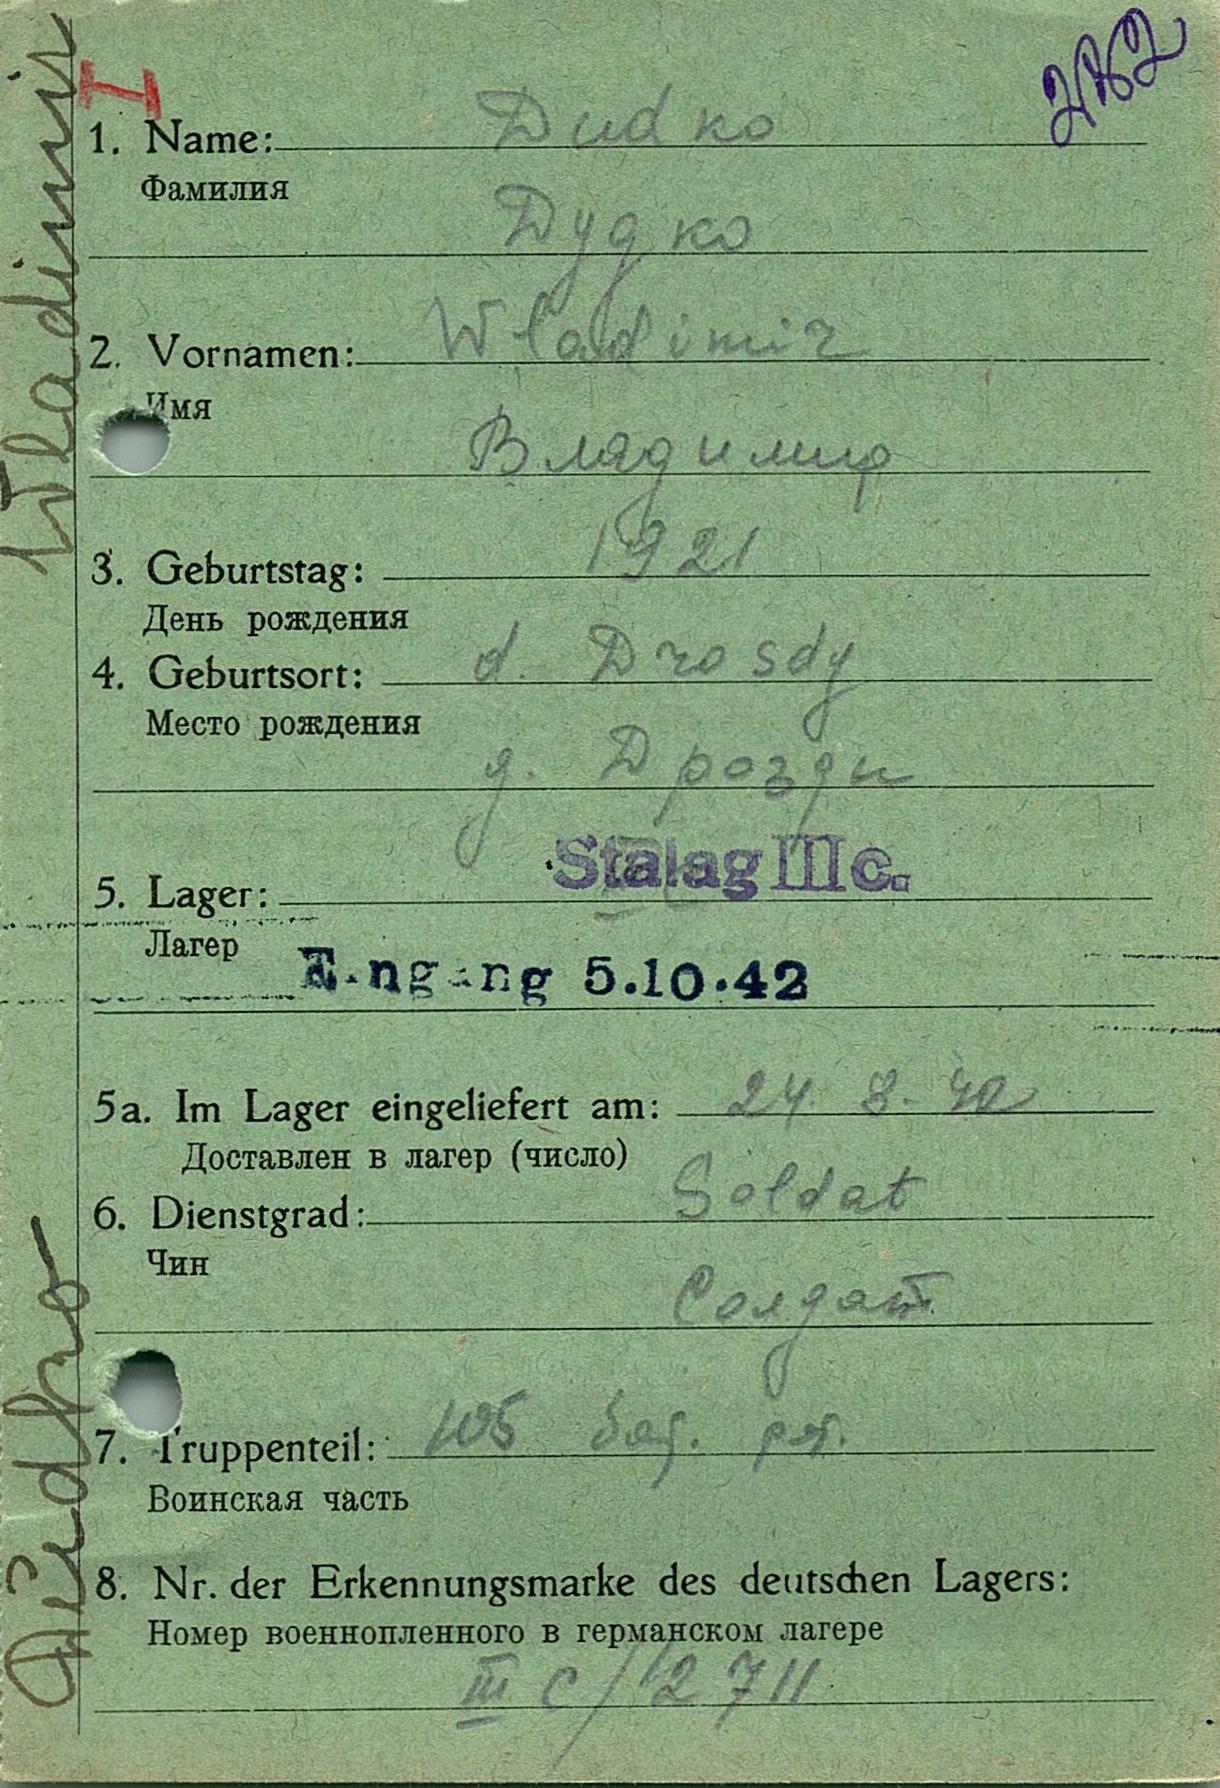 I
282
1. Name: Dudko
Фамилия
Дудко
2. Vornamen: Wladimir
Имя
Владимир
3. Geburtstag: 1921
День рождения
4. Geburtsort: d. Drosdy
Место рождения
д. Дрозди
Stalag III c.
5. Lager:
Лагер
Eingang 5.10.42
5a. Im Lager eingeliefert am: 24 8. 42
Доставлен в лагер (число)
6. Dienstgrad: Soldat
Чин
Солдат
7. Truppenteil: 105
Воинская часть
8. Nr. der Erkennungsmarke des deutschen Lagers:
Номер военнопленного в германском лагере
III C/12711
Dudko Wladimir